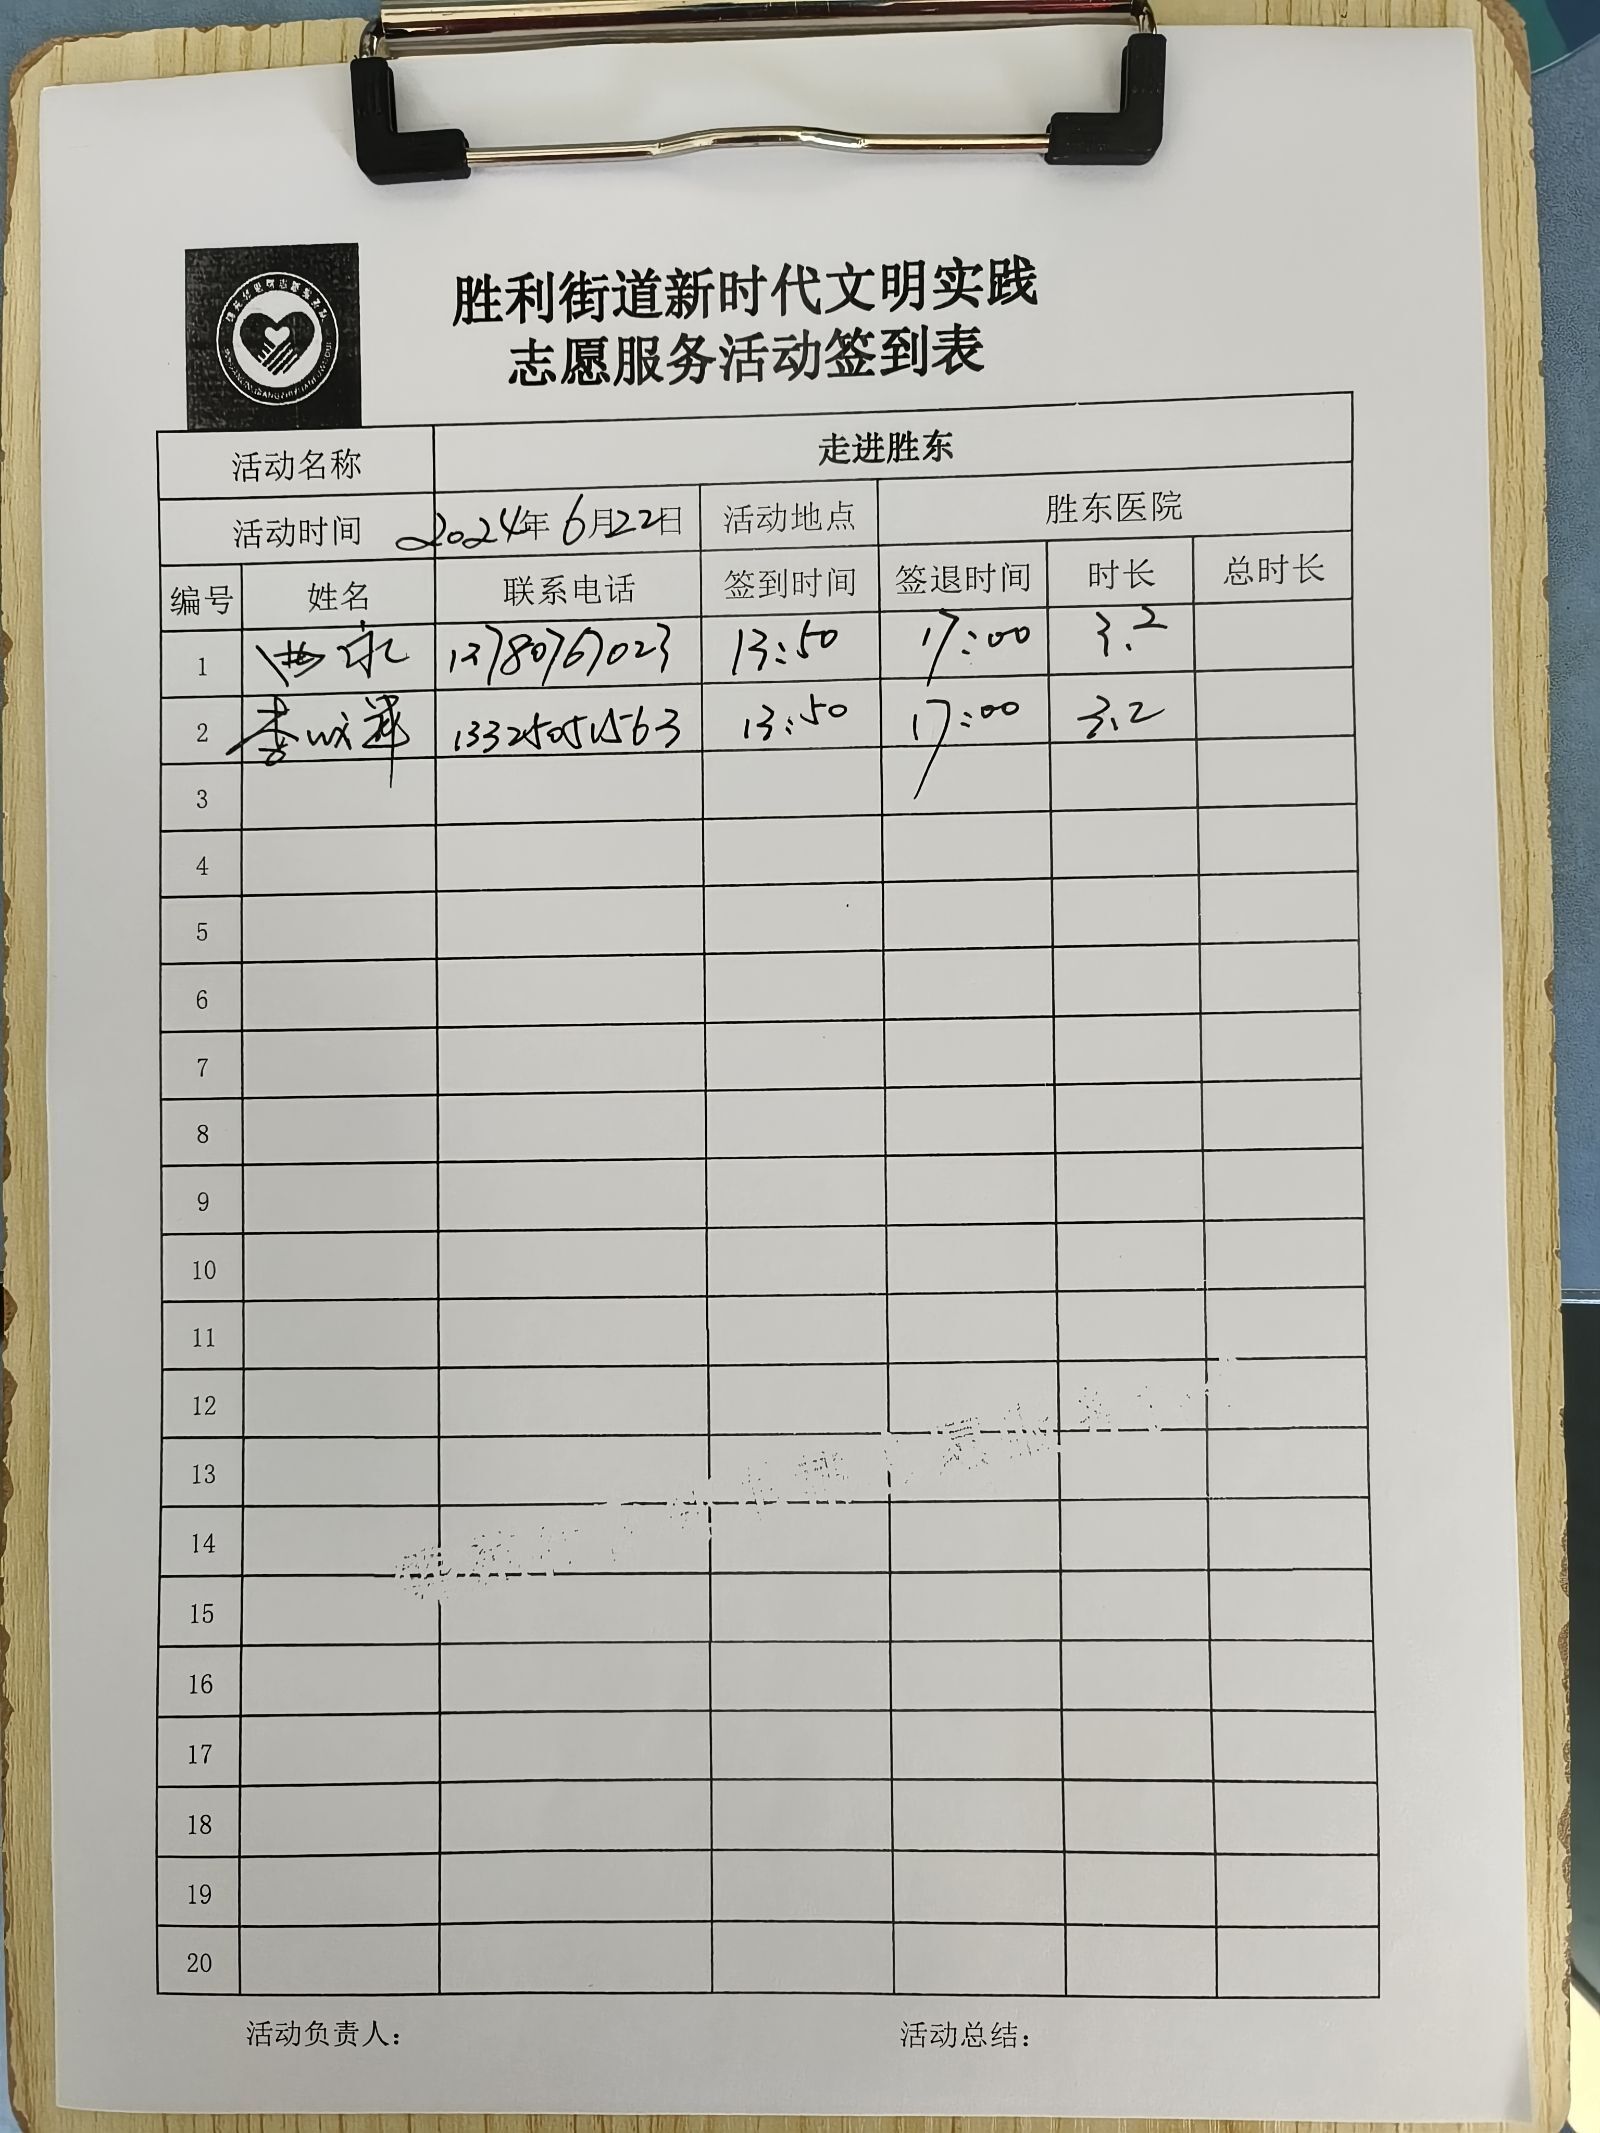 胜利街道新时代文明实践
志愿服务活动签到表
活动名称 走进胜东
活动时间 2024年6月22日 活动地点 胜东医院
编号 姓名 联系电话 签到时间 签退时间 时长 总时长
1 13780767023 13:50 17:00 3.2
2 李 13325051563 13:50 17:00 3.2
3
4
5
6
7
8
9
10
11
12
13
14
15
16
17
18
19
20
活动负责人： 活动总结：